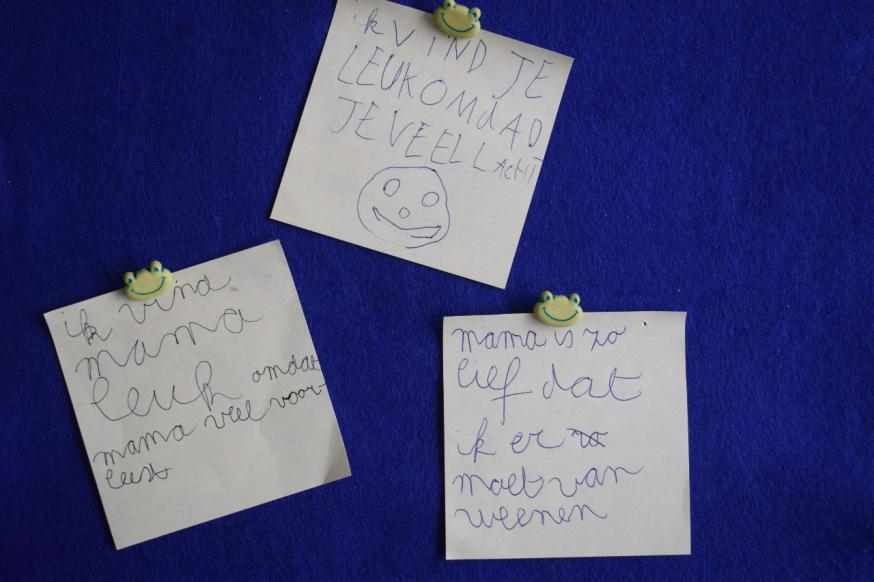 ik VIND JE
LEUK OMdAD
JE VEEL LAcHT
ik vind
mama
leuk omdat
mama veel voor-
leest
mama is zo
lief dat
ik er zo
moet van
weenen